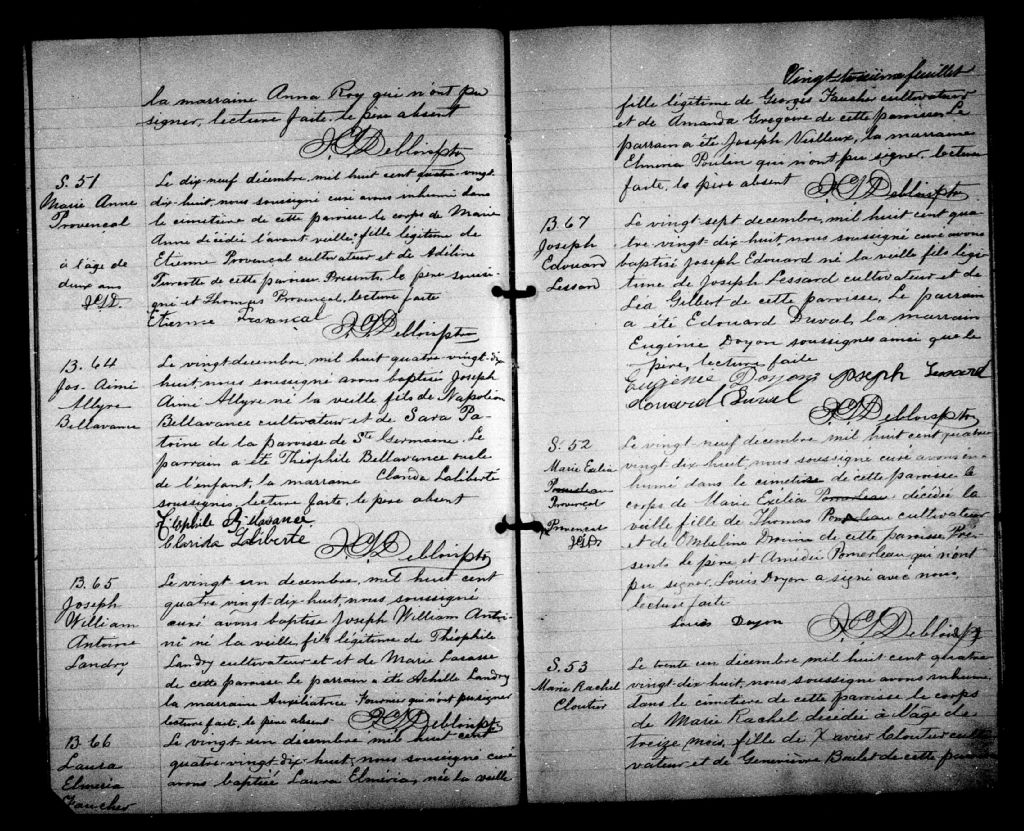 la marraine Anna Roy qui n'ont pu
signer, lecture faite, le père absent
J. G. Deblois ptre
S. 51
Marie Anne
Provençal
à l'âge de
deux ans
Le dix-neuf décembre, mil huit cent quatre-vingt
dix-huit, nous soussigné curé avons inhumé dans
le cimetière de cette paroisse le corps de Marie
Anne décédée l'avant veille, fille légitime de
Etienne Provençal cultivateur et de Adéline
Turcotte de cette paroisse. Présents, le père soussi-
gné et Thomas Provençal, lecture faite
Etienne Provançal
J. G. Deblois ptre
B. 64
Jos. Aimé
Allyre
Bellavance
Le vingt decembre, mil huit quatre-vingt-dix
huit, nous soussigné avons baptisé Joseph
Aimé Allyre né la veille fils de Napoléon
Bellavance cultivateur et de Sara Pa-
toine de la paroisse de Ste Germaine. Le
parrain a été Théophile Bellavance oncle
de l'enfant, la marraine Clarida Laliberté
soussignés, lecture faite, le père absent
Téophile Bellavance
Clarida Laliberté
J. G. Deblois ptre
B. 65
Joseph
William
Antoine
Landry
Le vingt-un décembre, mil huit cent
quatre vingt-dix-huit, nous soussigné
curé avons baptisé Joseph William Antoi-
ne né la veille fils légitime de Théophile
Landry cultivateur et et de Marie Lacasse
de cette paroisse. Le parrain a été Achille Landry
la marraine Auxiliatrice Fournier qui n'ont pu signer
lecture faite, le père absent J. G. Deblois ptre
B. 66
Laura
Elméria
Faucher
Le vingt-un décembre, mil huit cent
quatre-vingt-dix-huit, nous soussigné curé
avons baptisé Laura Elméria, née la veille
Vingt-troisième feuillet
fille légitime de Georges Faucher cultivateur
et de Amanda Grégoire de cette paroisse. Le
parrain a été Joseph Veilleux, la marraine
Elmina Poulin qui n'ont pu signer, lecture
faite, le père absent J. G. Deblois ptre
B. 67
Joseph
Edouard
Lessard
Le vingt-sept decembre, mil huit cent qua-
tre-vingt-dix-huit, nous soussigné curé avons
baptisé Joseph Edouard né la veille fils légi-
time de Joseph Lessard cultivateur et de
Léa Gilbert de cette paroisse. Le parrain
a été Edouard Duval, la marraine
Eugénie Doyon soussignés ainsi que le
père, lecture faite
Eugénie Doyon Joseph Lessard
Edouard Duval
J. G. Deblois ptre
S. 52
Marie Exélia
Provençal
Provençal
Le vingt-neuf decembre mil huit cent quatre
vingt-dix-huit, nous soussigné curé avons in-
humé dans le cimetière de cette paroisse le
corps de Marie Exélia Pomerleau décédée la
veille fille de Thomas Pomerleau cultivateur
et de Ombéline Drouin de cette paroisse. Pré-
sents le père et Amédée Pomerleau qui n'ont
pu signer, Louis Doyon a signé avec nous,
lecture faite
Louis Doyon
J. G. Deblois ptre
S. 53
Marie Rachel
Cloutier
Le trente un décembre mil huit cent quatre
vingt-dix-huit, nous soussigné avons inhumé
dans le cimetière de cette paroisse le corps
de Marie Rachel décédée à l'âge de
treize mois, fille de Xavier Cloutier culti-
vateur et de Geneviève Boulet de cette paroi